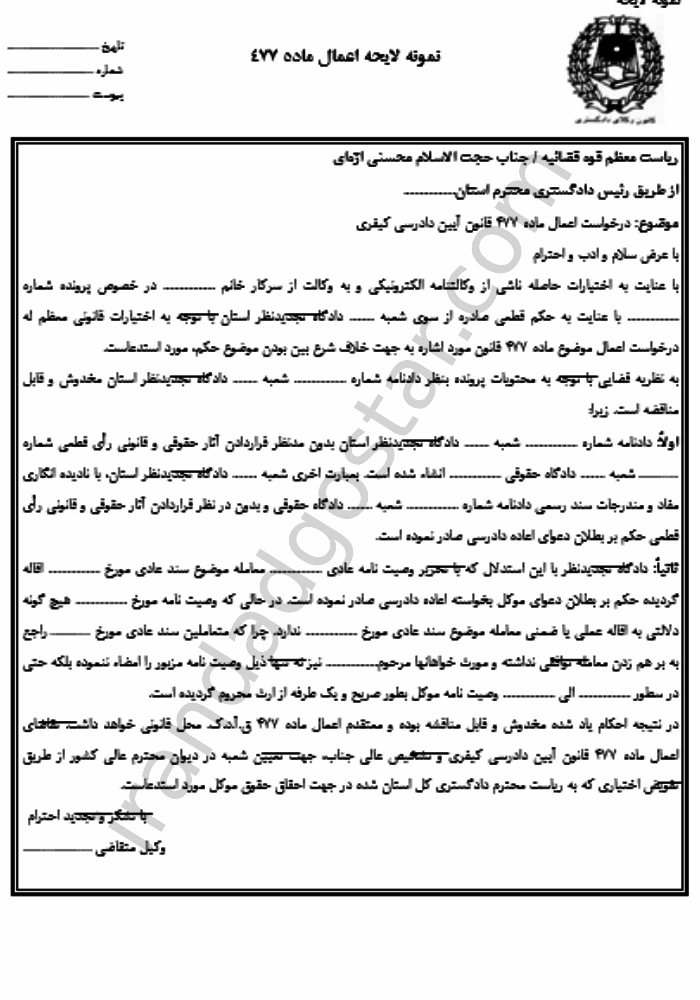 نمونه لایحه
نمونه لایحه اعمال ماده ۴۷۷
تاریخ
شماره
پیوست
کانون وکلای دادگستری
ریاست معظم قوه قضائیه / جناب حجت الاسلام محسنی اژه‌ای
از طریق رئیس دادگستری محترم استان............
موضوع: درخواست اعمال ماده ۴۷۷ قانون آیین دادرسی کیفری
با عرض سلام و ادب و احترام
با عنایت به اختیارات حاصله ناشی از وکالتنامه الکترونیکی و به وکالت از سرکار خانم ............ در خصوص پرونده شماره
............ با عنایت به حکم قطعی صادره از سوی شعبه ...... دادگاه تجدیدنظر استان با توجه به اختیارات قانونی معظم له
درخواست اعمال موضوع ماده ۴۷۷ قانون مورد اشاره به جهت خلاف شرع بین بودن موضوع حکم، مورد استدعاست.
به نظریه قضایی با توجه به محتویات پرونده بنظر دادنامه شماره ............ شعبه ...... دادگاه تجدیدنظر استان مخدوش و قابل
مناقضه است. زیرا:
اولاً: دادنامه شماره ............ شعبه ...... دادگاه تجدیدنظر استان بدون مدنظر قراردادن آثار حقوقی و قانونی رأی قطعی شماره
......... شعبه ...... دادگاه حقوقی ............ انشاء شده است. بعبارت اخری شعبه ...... دادگاه تجدیدنظر استان، با نادیده انگاری
مفاد و مندرجات سند رسمی دادنامه شماره ............ شعبه ...... دادگاه حقوقی و بدون در نظر قراردادن آثار حقوقی و قانونی رأی
قطعی حکم بر بطلان دعوای اعاده دادرسی صادر نموده است.
ثانیاً: دادگاه تجدیدنظر با این استدلال که با تحریر وصیت نامه عادی ............ معامله موضوع سند عادی مورخ ............ اقاله
گردیده حکم بر بطلان دعوای موکل بخواسته اعاده دادرسی صادر نموده است. در حالی که وصیت نامه مورخ ............ هیچ گونه
دلالتی به اقاله عملی یا ضمنی معامله موضوع سند عادی مورخ ............ ندارد. چرا که متعاملین سند عادی مورخ ......... راجع
به بر هم زدن معامله توافقی نداشته و مورث خواهانها مرحوم............ نیز نه تنها ذیل وصیت نامه مزبور را امضاء ننموده بلکه حتی
در سطور ............ الی ............ وصیت نامه موکل بطور صریح و یک طرفه از ارث محروم گردیده است.
در نتیجه احکام یاد شده مخدوش و قابل مناقشه بوده و معتقدم اعمال ماده ۴۷۷ ق.آ.د.ک. محل قانونی خواهد داشت. تقاضای
اعمال ماده ۴۷۷ قانون آیین دادرسی کیفری و تشخیص عالی جناب، جهت تعیین شعبه در دیوان محترم عالی کشور از طریق
تفویض اختیاری که به ریاست محترم دادگستری کل استان شده در جهت احقاق حقوق موکل مورد استدعاست.
با تشکر و تجدید احترام
وکیل متقاضی ............
irandadgostar.com